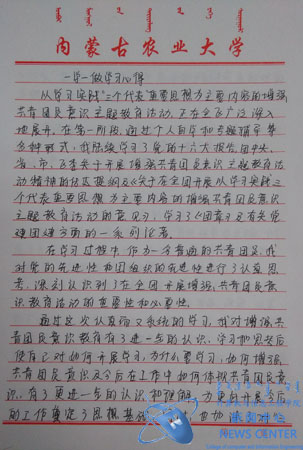 内蒙古农业大学
一学一做学习心得
从学习实践“三个代表”重要思想为主要内容的增强
共青团员意识主题教育活动,正在全飞广泛深入
地展开。在第一阶段,通过个人自学和专题辅导等
多种形式,我陆续学习了党的十六大报告、团中央、
省、市、飞委关于开展增强共青团员意识主题教育活
动精神的传达提纲及《关于在全团开展以学习实践三
个代表重要思想为主要内容的增强共青团员意识
主题教育活动的意见》,学习了《团章》及有关党
建团建方面的一系列论著。
在学习过程中,作为一名普通的共青团员,我
对党的先进性和团组织的先进性进行了认真思
考,深刻认识到了在全团开展增强共青团员意
识教育活动的重要性和必要性。
通过这次认真而又系统的学习,我对增强共
青团员意识教育有了进一步的认识,学习和思考后
使自己对如何开展学习,为什么要学习,如何增强
共青团员意识及今后在工作中如何体现共青团员意
识,有了更进一步的认识和理解,为更好开展今后
的工作奠定了思想基础
NEWS CENTER